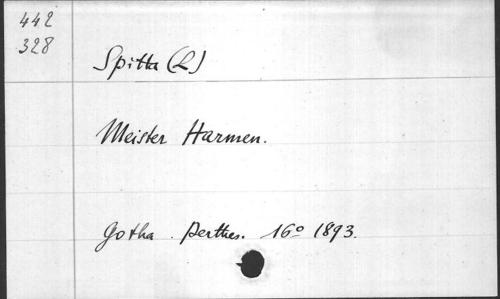 442
328
Spitta (L)
Meister Harmen.
Gotha. Perthes. 16° 1893.